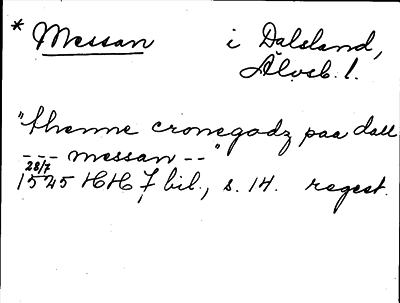 * Messan i Dalsland,
Älvsb. l.
"thenne cronegodz paa dall
--- messan --"
28/7
1545 HH 7 bil., s. 14. regest.